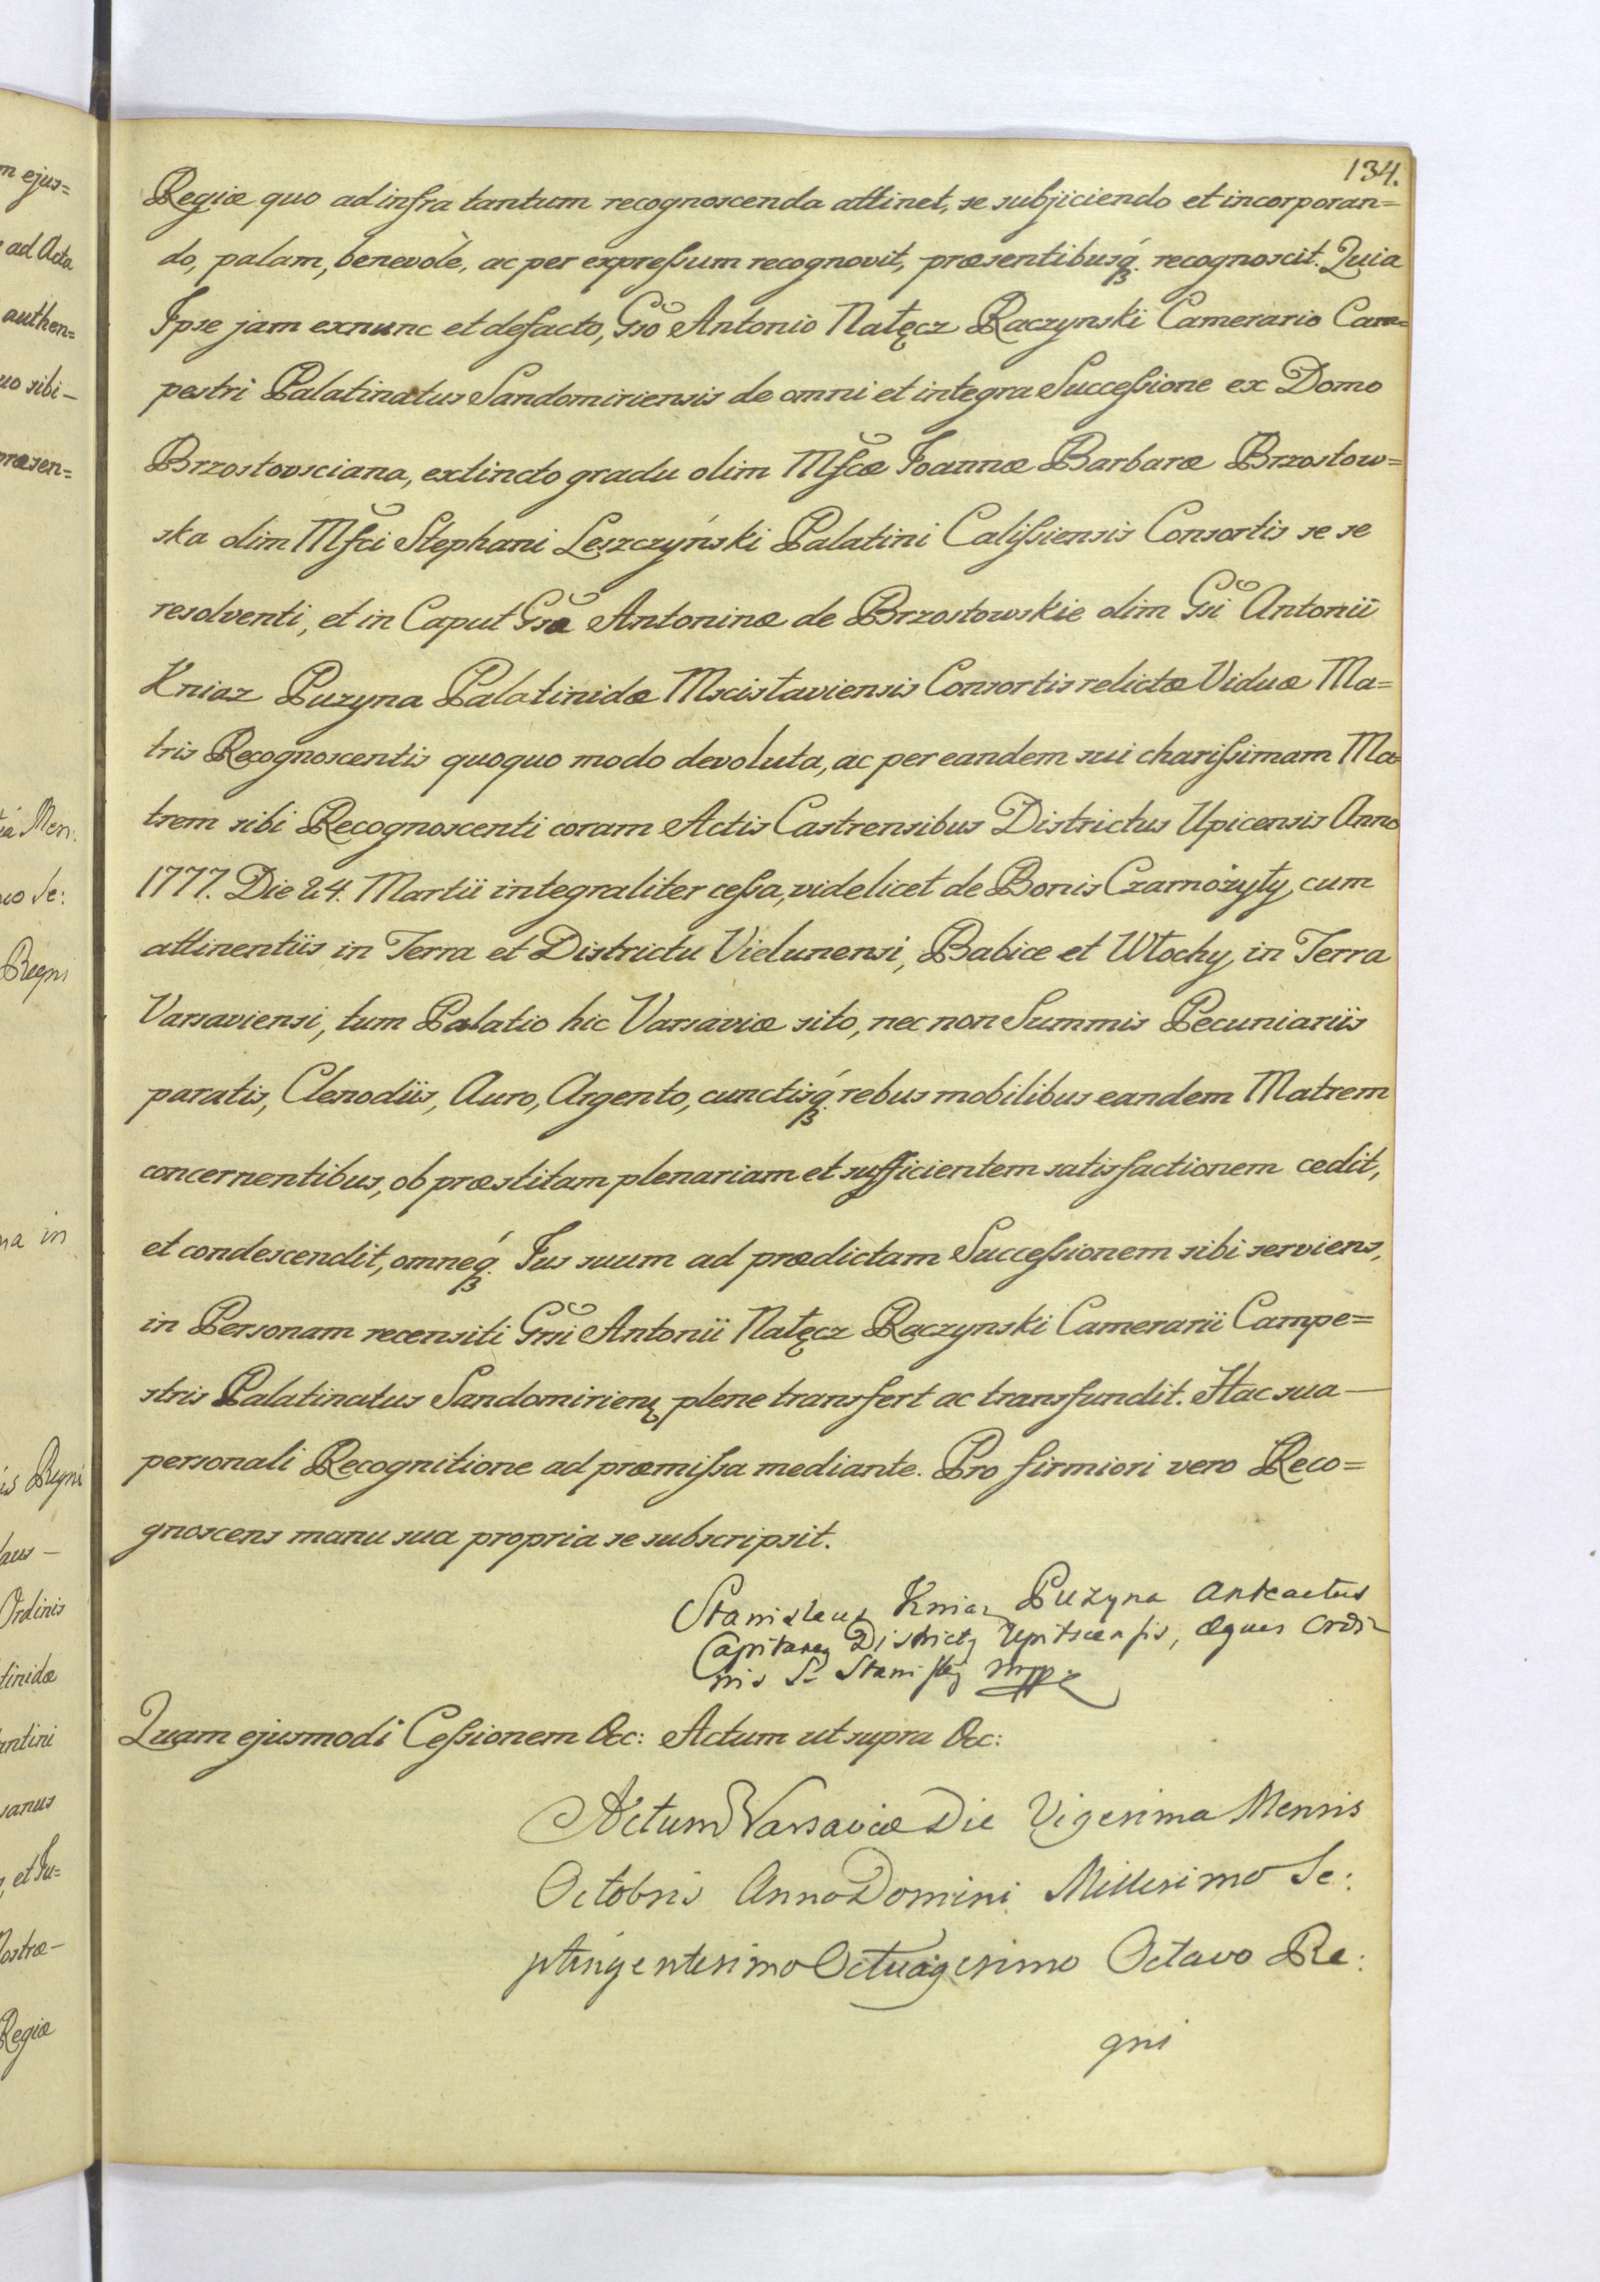 134.
Regiæ quo ad infra tantum recognoscenda attinet, se subjiciendo et incorporan=
do, palam, benevolè, ac per expreſsum recognovit, præsentibusq́ꝫ recognoscit. Quia
Ipse jam exnunc et defacto, Gso Antonio Nałęcz Raczynski Camerario Cam=
pestri Palatinatus Sandomiriensis de omni et integra Succeſsione ex Domo
Brzostovsciana, extincto gradu olim Mſcæ Joannæ Barbaræ Brzostow=
ska olim Mſci Stephani Leszczyński Palatini Caliſsiensis Consortis se se
resolventi, et in Caput Gsæ Antoninæ de Brzostowskie olim Gsi Antonii
Kniaz Puzyna Palatinidæ Mscisłaviensis Consortis relictæ Viduæ Ma=
tris Recognoscentis quoquo modo devoluta, ac per eandem sui chariſsimam Ma=
trem sibi Recognoscenti coram Actis Castrensibus Districtus Upicensis Anno
1777. Die 24. Martii integraliter ceſsa, videlicet de Bonis Czarnożyły, cum
attinentiis in Terra et Districtu Vielunensi, Babice et Włochy, in Terra
Varsaviensi, tum Palatio hic Varsaviæ sito, nec non Summis Pecuniariis
paratis, Clenodiis, Auro, Argento, cunctisq́ꝫ rebus mobilibus eandem Matrem
concernentibus, ob præstitam plenariam et sufficientem satisfactionem cedit,
et condescendit, omneq́ꝫ Jus suum ad prædictam Succeſsionem sibi serviens,
in Personam recensiti Gsi Antonii Nałęcz Raczynski Camerarii Campe=
stris Palatinatus Sandomirienȩ plene transfert ac transfundit. Hac sua—
personali Recognitione ad præmiſsa mediante. Pro firmiori vero Reco=
gnoscens manu sua propria se subscripsit.
Stanislaus Kniaz Puzyna anteactus
Capitaneȩ Districtȩ Upitscensis, æques Ordi
nis S. Staniſlai mppa
Quam ejusmodi Ceſsionem &c: Actum ut supra &c:
Actum Varsaviæ Die Vigesima Mensis
Octobris Anno Domini Millesimo Se:
ptingentesimo Octuagesimo Octavo Re:
gni
m ejus=
ad Acta
authen=
uo sibi—
præsen=
Men:
Se:
Regni
na in
is Regni
laus—
Ordinis
tinidæ
antini
sanus
, et Ju=
Nostræ—
Regiæ